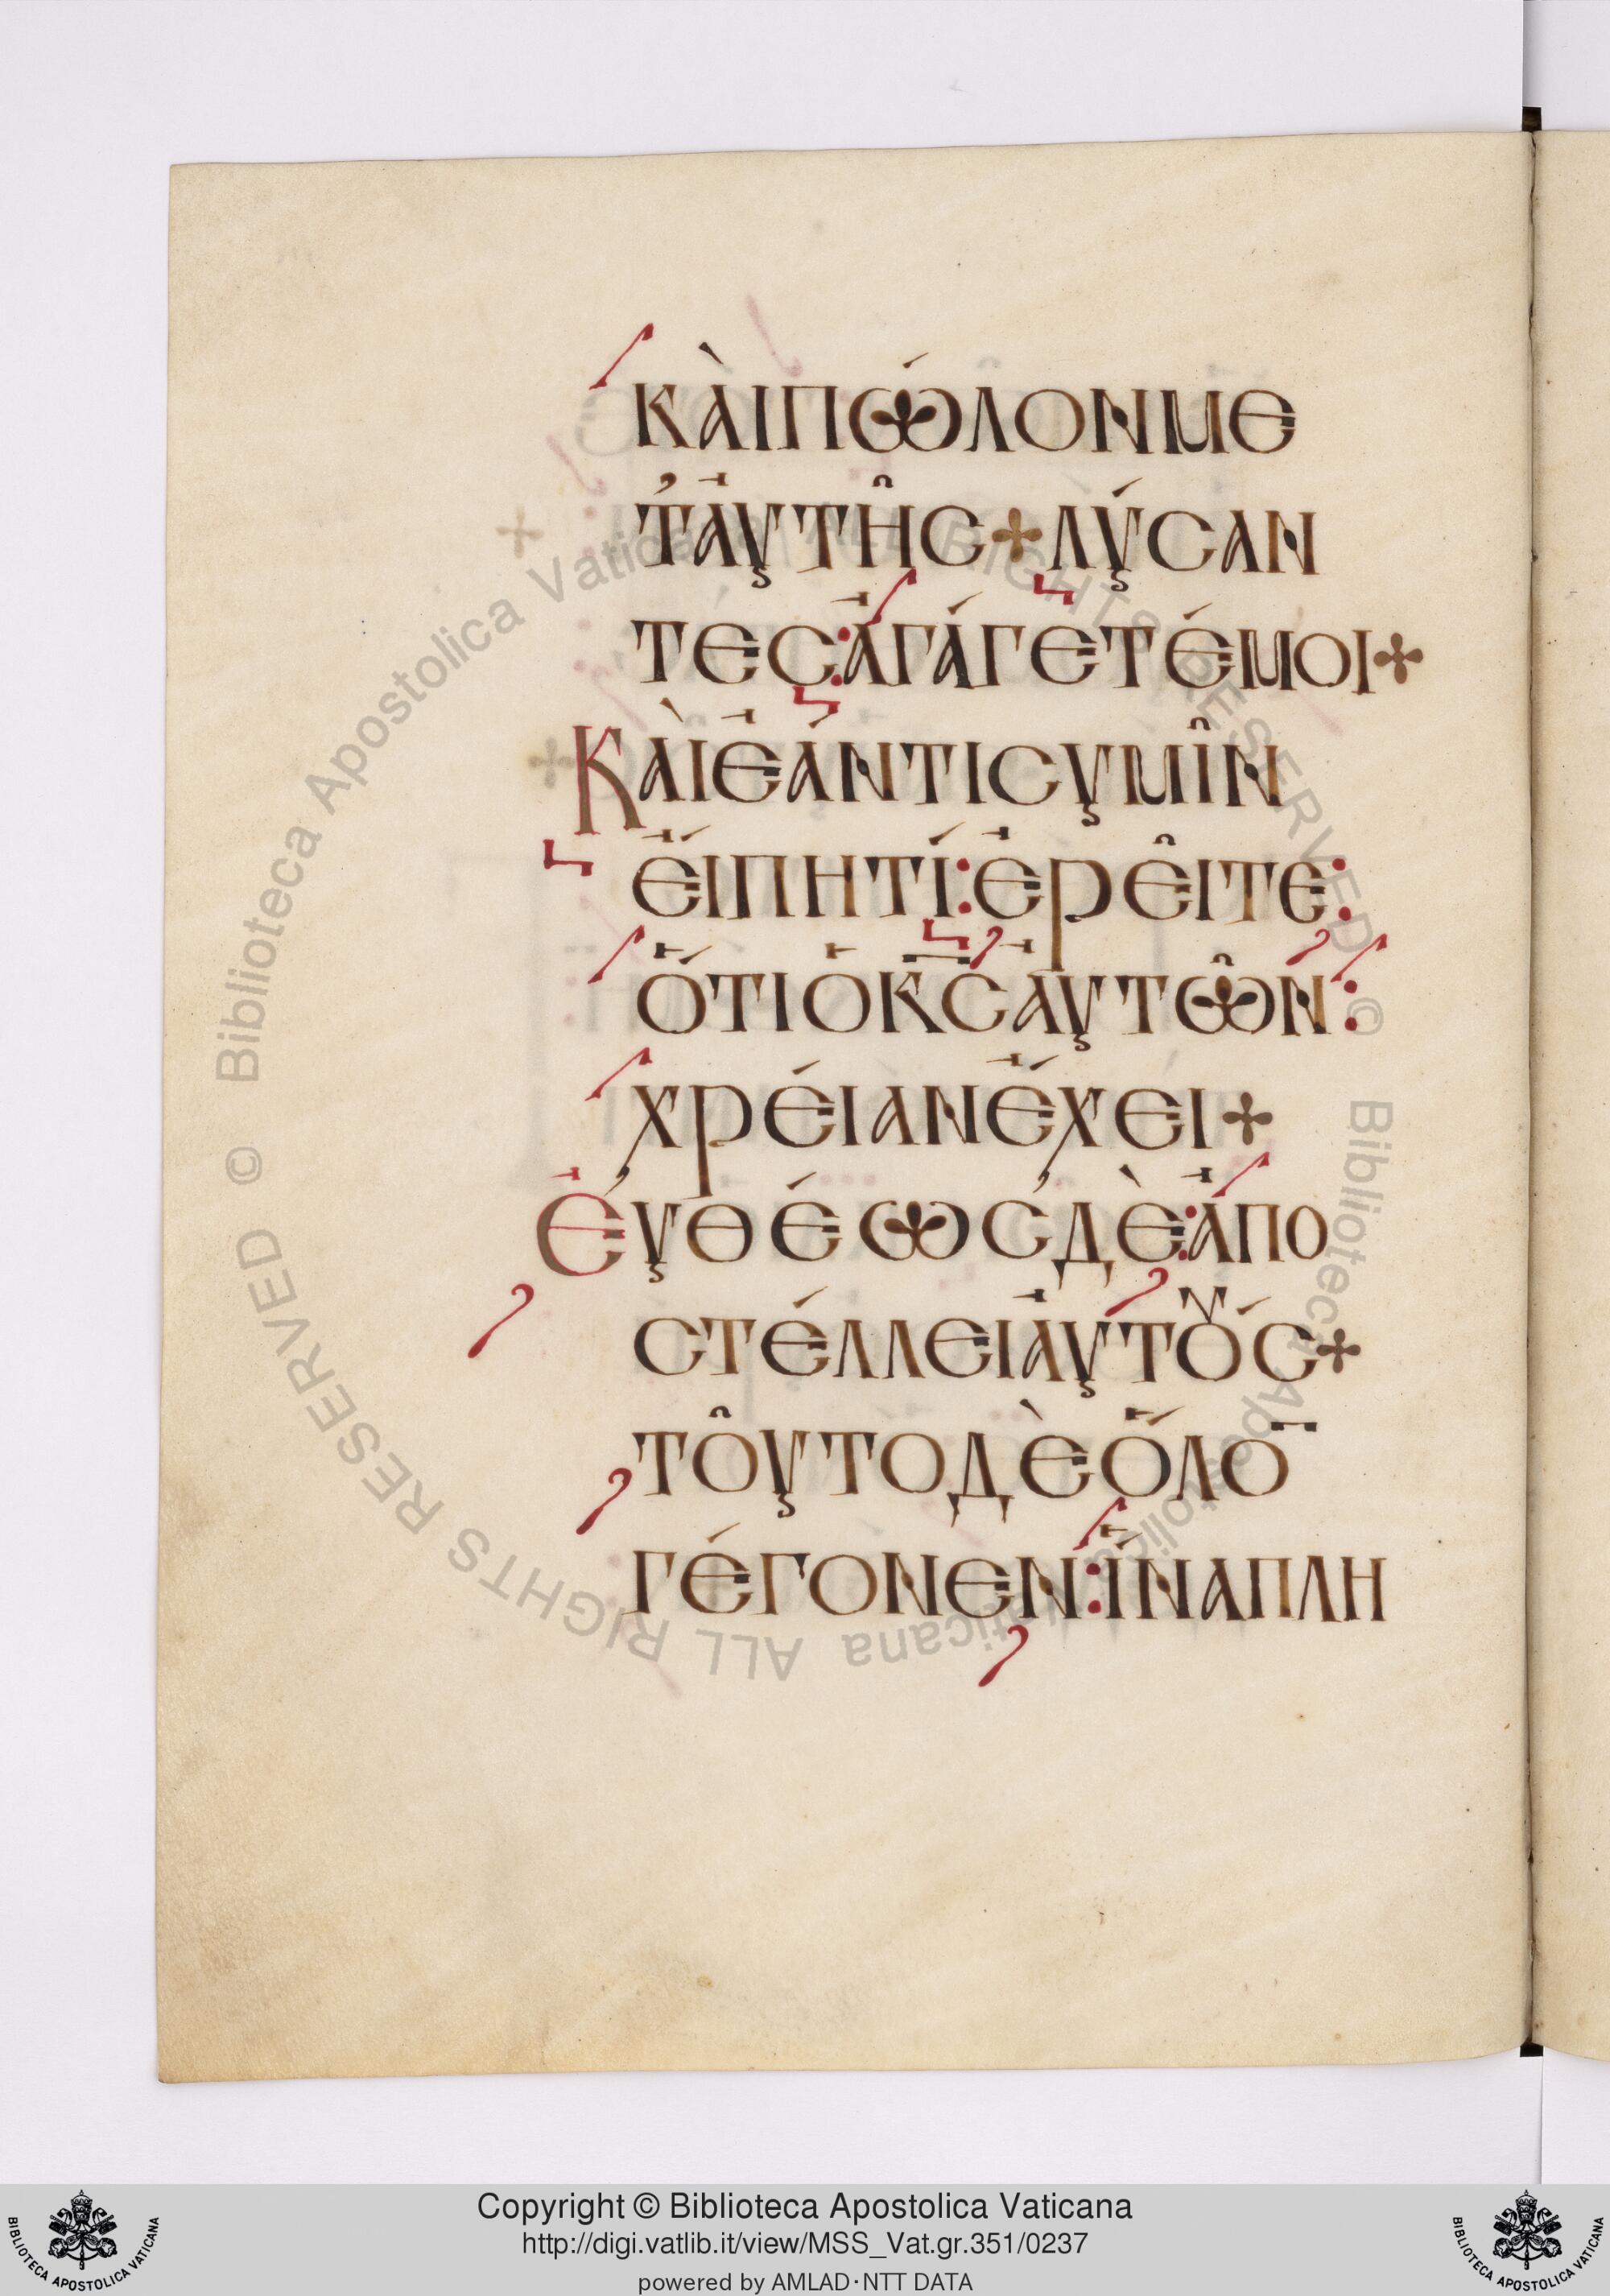 ΚΑΙ ΠΩΛΟΝ ΜΕ
Τ ΑΥΤΗΣ + ΛΥΣΑΝ
ΤΕΣ: ΑΓΑΓΕΤΕ ΜΟΙ +
ΚΑΙ ΕΑΝ ΤΙΣ ΥΜΙΝ
ΕΙΠΗ ΤΙ: ΕΡΕΙΤΕ:
ΟΤΙ Ο ΚΣ ΑΥΤΩΝ:
ΧΡΕΙΑΝ ΕΧΕΙ +
ΕΥΘΕΩΣ ΔΕ: ΑΠΟ
ΣΤΕΛΛΕΙ ΑΥΤΟΥΣ +
ΤΟΥΤΟ ΔΕ ΟΛΟ̅
ΓΕΓΟΝΕΝ: ΙΝΑ ΠΛΗ
© Biblioteca Apostolica Vaticana ALL RIGHTS RESERVED © Biblioteca Apostolica Vaticana ALL RIGHTS RESERVED
Copyright © Biblioteca Apostolica Vaticana
http://digi.vatlib.it/view/MSS_Vat.gr.351/0237
powered by AMLAD·NTT DATA
BIBLIOTECA APOSTOLICA VATICANA
BIBLIOTECA APOSTOLICA VATICANA